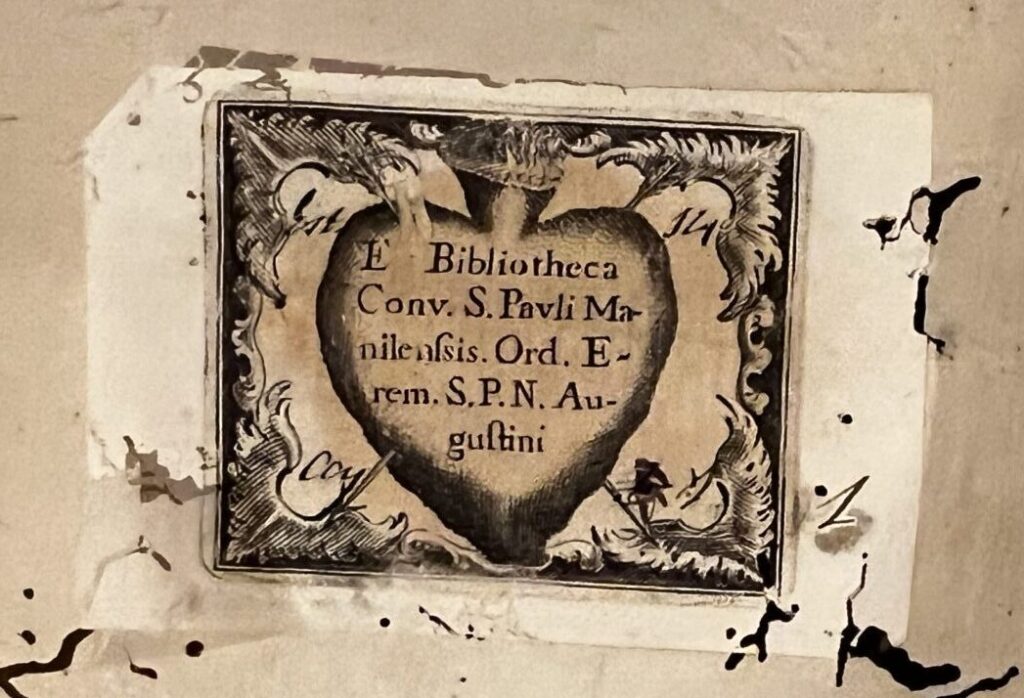 E Bibliotheca
Conv. S. Pavli Ma-
nilenſsis. Ord. E-
rem. S. P. N. Au-
guſtini
Est
14